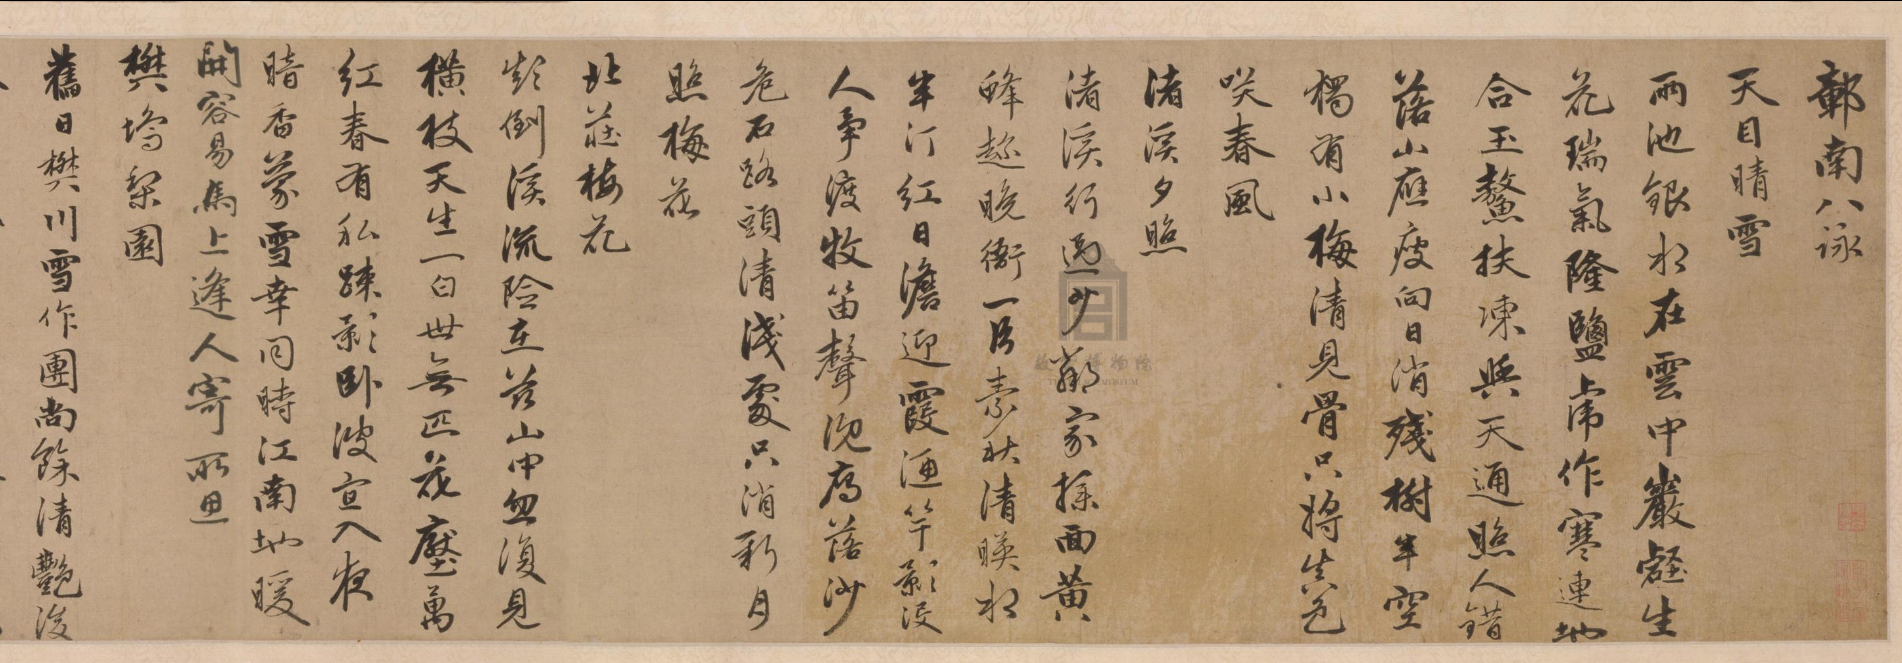 鄣南八詠
天目晴雪
雨池銀水在雲中巖壑生
花瑞氣隆鹽虎作寒連地
合玉鰲扶凍與天通照人錯
落山應瘦向日消殘樹半空
獨有小梅清見骨只將生色
笑春風
渚溪夕照
渚溪行過少鄰家採面黃
蜂趁晚衙一片素秋清暎水
半汀紅日澹迎霞酒竿影浸
人爭渡牧笛聲沉雁落沙
危石路頭清淺處只消新月
照梅花
北莊梅花
影倒溪流險在茲山中忽復見
橫枝天生一白世無匹花壓萬
紅春有私疎影臥波宜入夜
暗香蒙雪幸同時江南地暖
開容易馬上逢人寄所思
樊塢梨園
舊日樊川雪作團尚餘清艷後